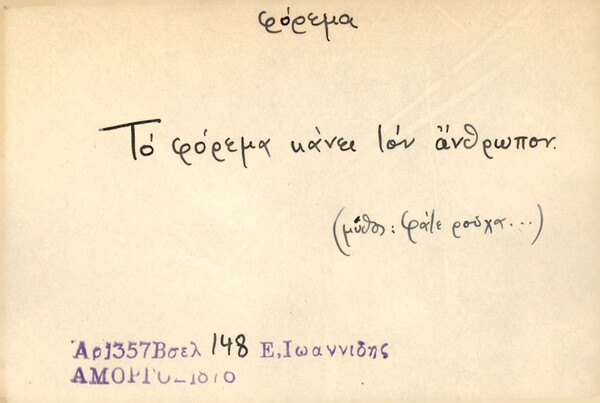 φόρεμα
Τό φόρεμα κάνει τόν ἄνθρωπον.
(μῦθος: φάτε ροῦχα...)
Αρ1357Βσελ 148 Ε,Ιωαννιδης
ΑΜΟΡΓΟΣ 1876